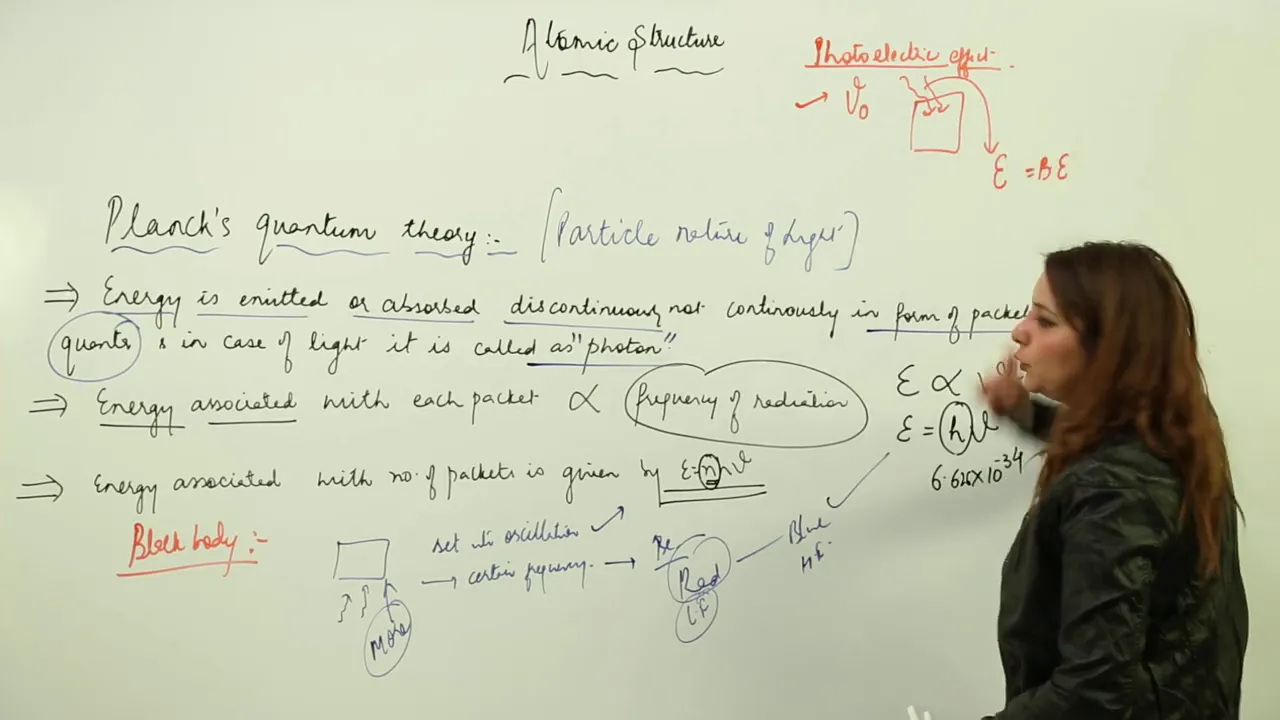 Atomic Structure
Photoelectric effect
ν₀
E = BE
Planck's quantum theory :- [Particle nature of Light]
⇒ Energy is emitted or absorbed discontinuous, not continously in form of packet
quanta & in case of light it is called as "photon"
⇒ Energy associated with each packet ∝ frequency of radiation
E ∝
E = hν
6.626×10⁻³⁴
⇒ Energy associated with no. of packets is given by E=nhν
Black body :-
set into oscillation ✓
→ certain frequency. →
More
Red
L.F
Blue
H.F.